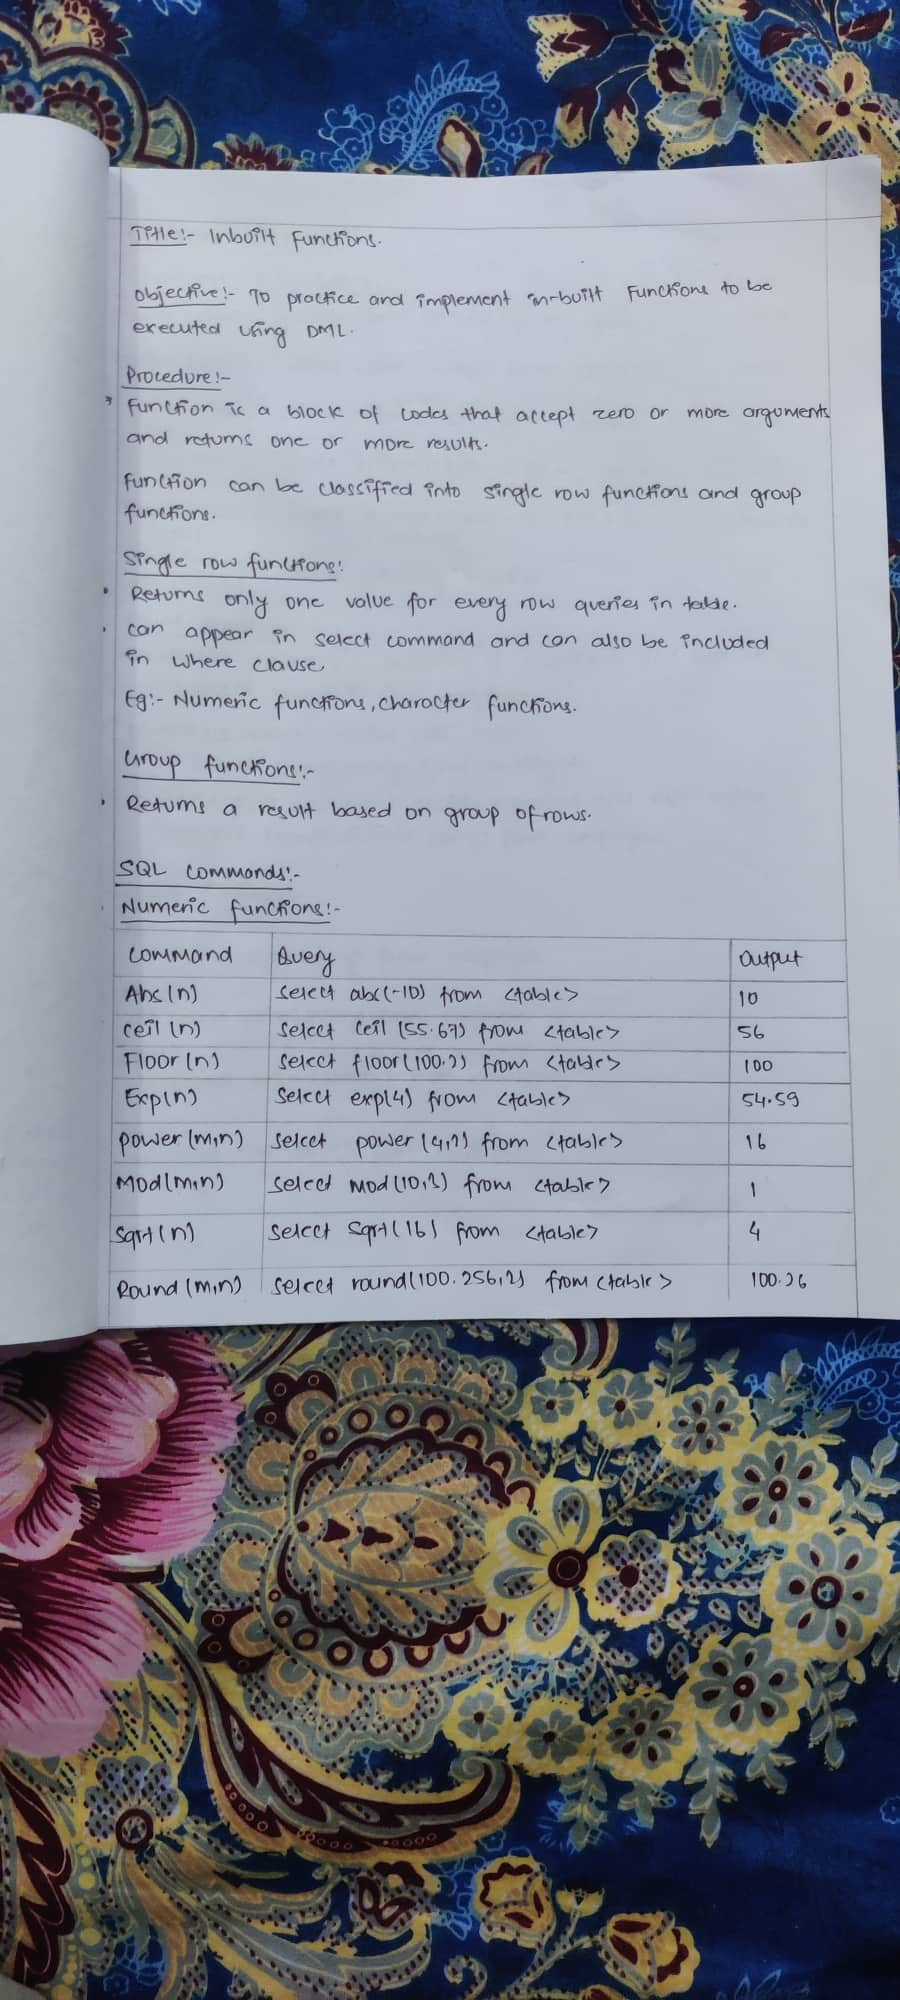 Title:- Inbuilt Functions.
Objective:- To practice and implement in-built Functions to be
executed using DML.
Procedure:-
Function is a block of codes that accept zero or more arguments
and returns one or more results.
Function can be classified into single row functions and group
functions.
Single row functions:
• Returns only one value for every row queries in table.
• can appear in select command and can also be included
in where clause.
Eg:- Numeric functions, character functions.
Group functions:-
• Returns a result based on group of rows.
SQL commands:-
Numeric functions:-
Command Query Output
Abs(n) Select abs(-10) from <table> 10
ceil(n) Select ceil(55.67) from <table> 56
Floor(n) Select floor(100.2) from <table> 100
Exp(n) Select exp(4) from <table> 54.59
power(m,n) Select power(4,2) from <table> 16
Mod(m,n) Select Mod(10,3) from <table> 1
Sqrt(n) Select Sqrt(16) from <table> 4
Round(m,n) Select round(100.256,2) from <table> 100.26